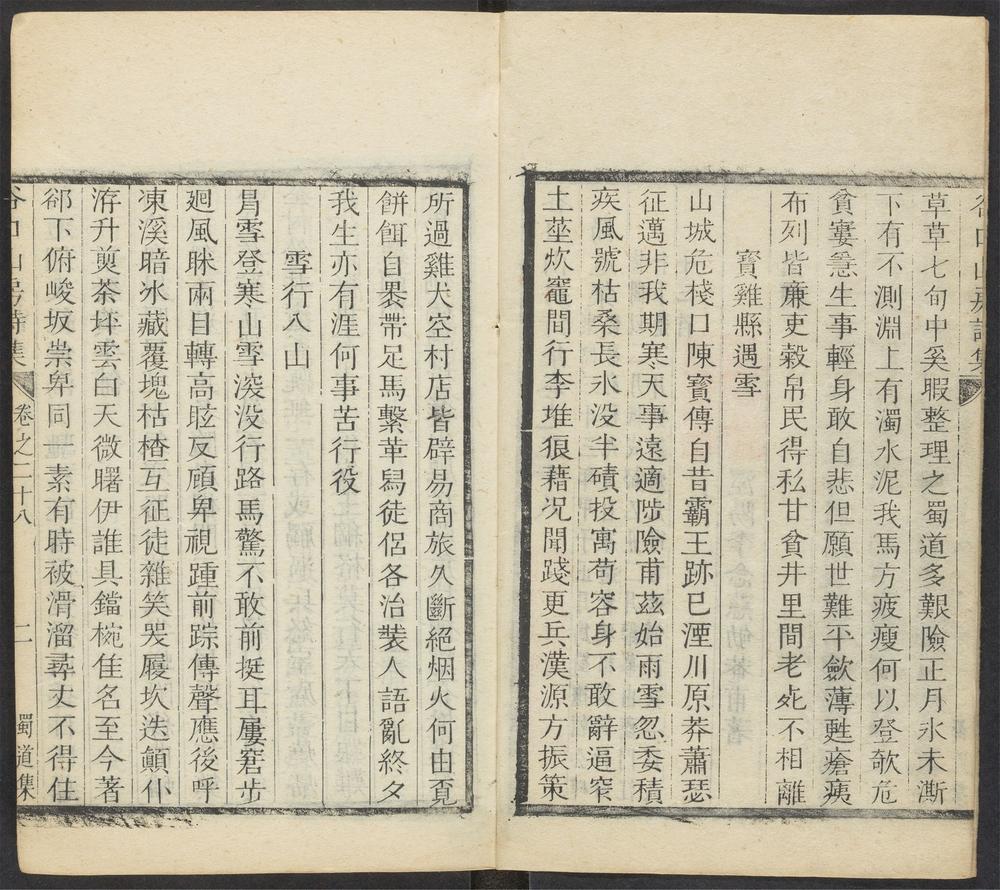 谷口山房詩集
草草七旬中奚暇整理之蜀道多艱險正月氷未澌
下有不測淵上有濁水泥我馬方疲瘦何以登欹危
貧寠急生事輕身敢自悲但願世難平歛薄甦瘡痍
布列皆廉吏糓帛民得私甘貧井里間老死不相離
寶雞縣遇雪
山城危棧口陳寶傳自昔霸王跡已湮川原莽蕭瑟
征邁非我期寒天事遠適陟險甫茲始雨雪忽委積
疾風號枯桑長氷没半磧投寓苟容身不敢辭逼窄
土莝炊竈間行李堆狼藉况聞踐更兵漢源方振策
所過雞犬空村店皆辟易商旅久斷絕烟火何由覔
餅餌自褁帶足馬繫革舃徒侶各治裝人語亂終夕
我生亦有涯何事苦行役
雪行入山
冐雪登寒山雪深没行路馬驚不敢前挺耳屢窘步
廻風眯兩目轉高眩反顧卑視踵前踪傳聲應後呼
凍溪暗氷藏覆塊枯楂互征徒雜笑哭屨坎迭顛仆
洊升煎茶坪雲白天微曙伊誰具鐺椀佳名至今著
郤下俯峻坂崇卑同一素有時被滑溜尋丈不得住
谷口山房詩集 卷之二十八 二 蜀道集